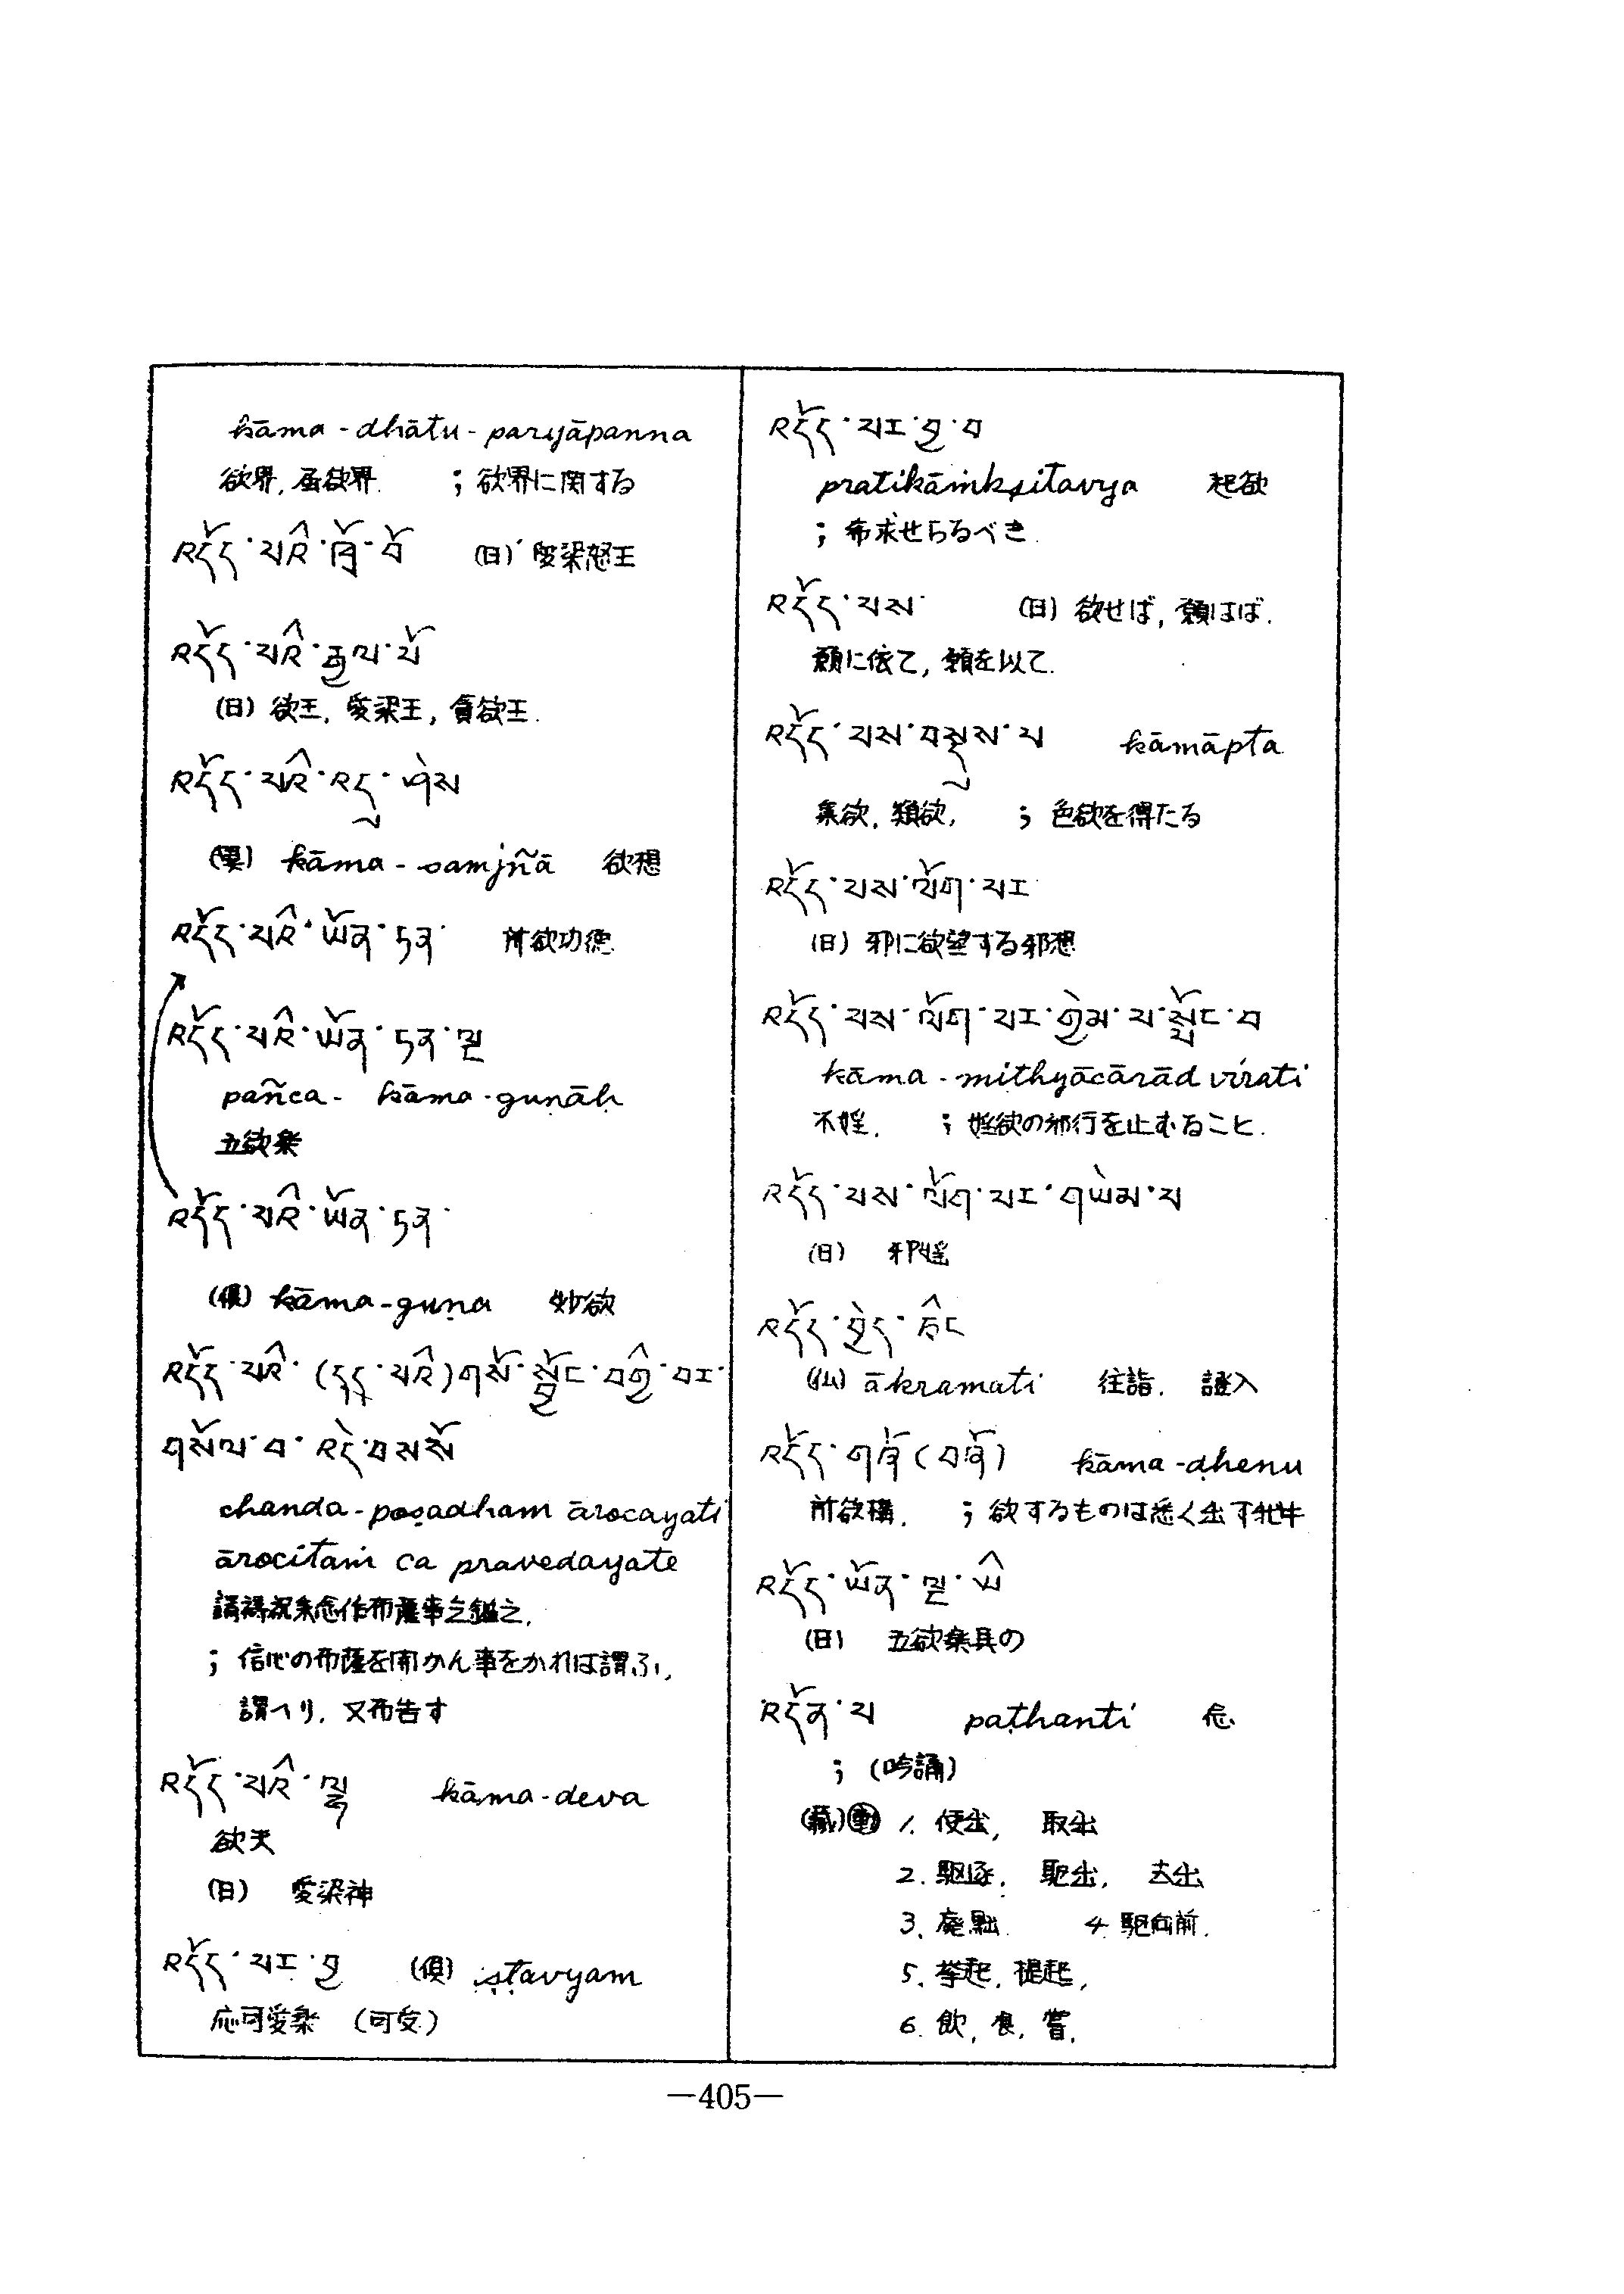 kāma-dhātu-paryāpanna
欲界, 属欲界. ; 欲界に関する
འདོད་པའི་ཁྲོ་བོ (日) 愛染怒王
འདོད་པའི་རྒྱལ་པོ
(日) 欲王, 愛染王, 貪欲王.
འདོད་པའི་འདུ་ཤེས
kāma-samjñā 欲想
འདོད་པའི་ཡོན་ཏན་ 所欲功徳
འདོད་པའི་ཡོན་ཏན་ལྔ
pañca-kāma-guṇāḥ
五欲楽
འདོད་པའི་ཡོན་ཏན་
(倶) kāma-guṇa 妙欲
འདོད་པའི་ (དད་པའི) གསོ་སྦྱོང་བགྱི་བར་
གསོལ་བ་འདེབསསོ
chanda-poṣadham ārocayati
ārocitaṁ ca pravedayate
; 信心の布薩を開かん事をかれは謂ふ,
謂へり, 又布告す
འདོད་པའི་ལྷ kāma-deva
欲天
(日) 愛染神
འདོད་པར་བྱ (倶) iṣṭavyam
応可愛楽 (可愛)
འདོད་པར་བྱ་བ
pratikāṁkṣitavya 起欲
; 希求せらるべき.
འདོད་པས་ (日) 欲せば, 願はば.
願に依て, 願を以て.
འདོད་པས་བསྡུས་པ kāmāpta
集欲, 類欲, ; 色欲を得たる
འདོད་པས་ལོག་པར
(日) 邪に欲望する邪想
འདོད་པས་ལོག་པར་གྱེམ་པ་སྤོང་བ
kāma-mithyācārād virati
不婬. ; 婬欲の邪行を止むること.
འདོད་པས་ལོག་པར་གཡེམ་པ
(日) 邪婬
འདོད་བྱེད་ཅིང
ākramati 往詣. 證入
འདོད་གཞོ (བཞོ) kāma-ḍhenu
所欲搆. ; 欲するものは悉く出す牝牛
འདོད་ཡོན་ལྔ་ཡི
(日) 五欲楽具の
འདོན་པ paṭhanti 念
; (吟誦)
(蔵) 動 1. 使出, 取出
2. 駆逐, 駆出, 去出
3. 廃黜. 4. 駆向前.
5. 挙起, 提起,
6. 飲, 食, 嘗.
—405—